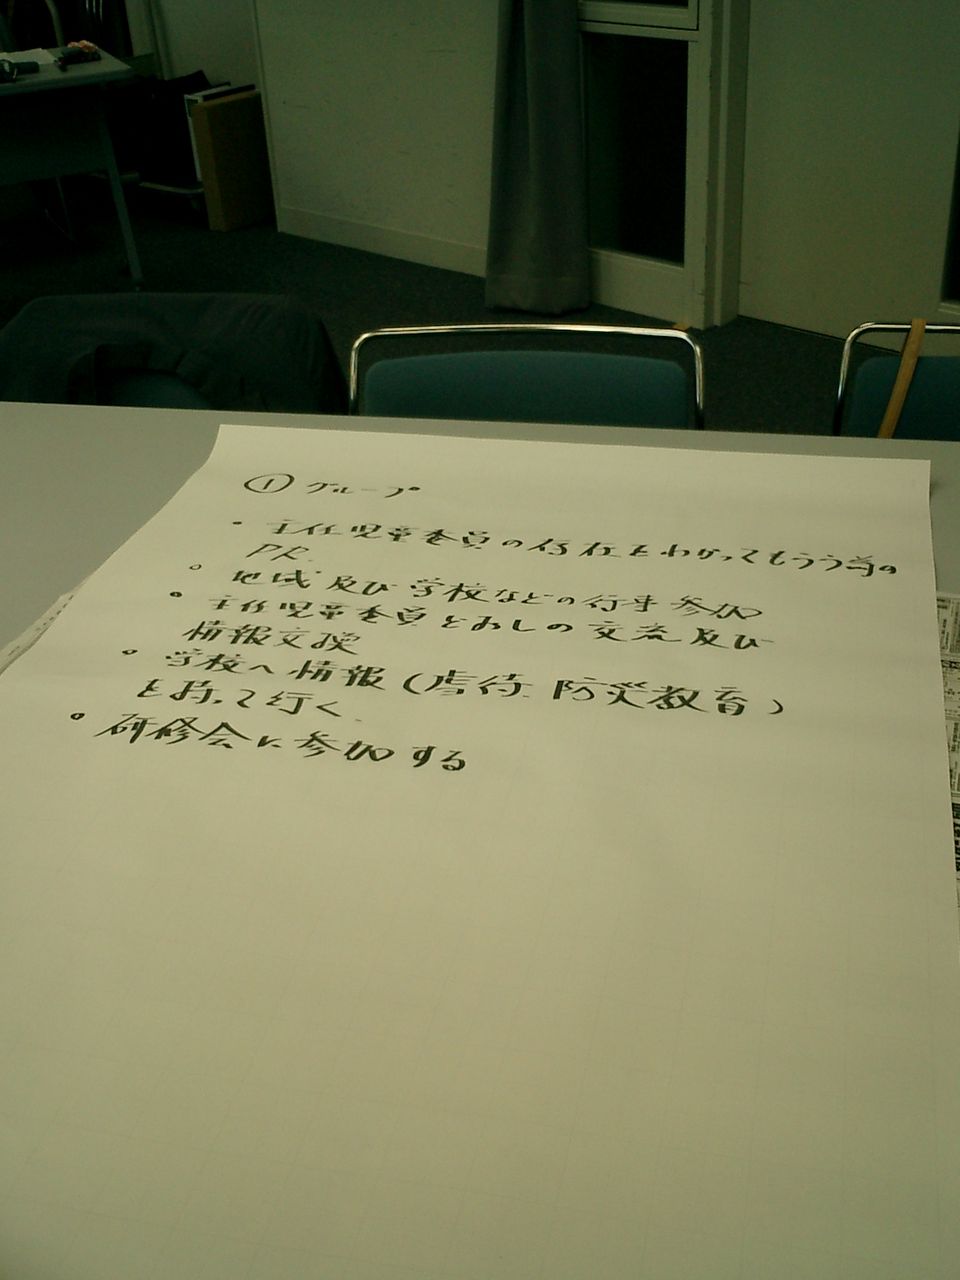 ① グループ
• 主任児童委員の存在をわかってもらう為の
PR
• 地域及び学校などの行事参加
• 主任児童委員どおしの交流及び
情報交換
• 学校へ情報(虐待 防災教育)
を持って行く.
• 研修会に参加する